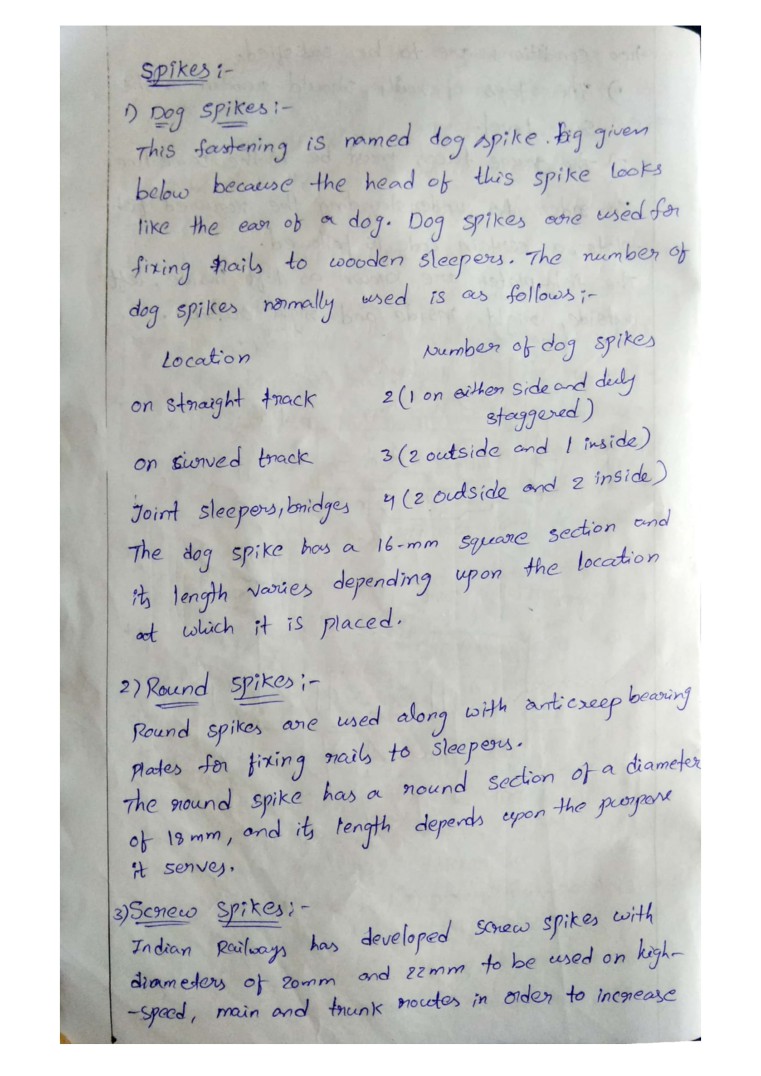 Spikes :-
1) Dog Spikes :-
This fastening is named dog spike. fig given
below because the head of this spike looks
like the ear of a dog. Dog spikes are used for
fixing rails to wooden sleepers. The number of
dog spikes normally used is as follows :-
Location Number of dog spikes
on straight track 2 (1 on either side and duly
staggered)
on curved track 3 (2 outside and 1 inside)
Joint sleepers, bridges 4 (2 outside and 2 inside)
The dog spike has a 16-mm square section and
its length varies depending upon the location
at which it is placed.
2) Round Spikes :-
Round spikes are used along with anticreep bearing
plates for fixing rails to sleepers.
The round spike has a round section of a diameter
of 18 mm, and its length depends upon the purpose
it serves.
3) Screw Spikes :-
Indian Railways has developed screw spikes with
diameters of 20mm and 22mm to be used on high-
-speed, main and trunk routes in order to increase